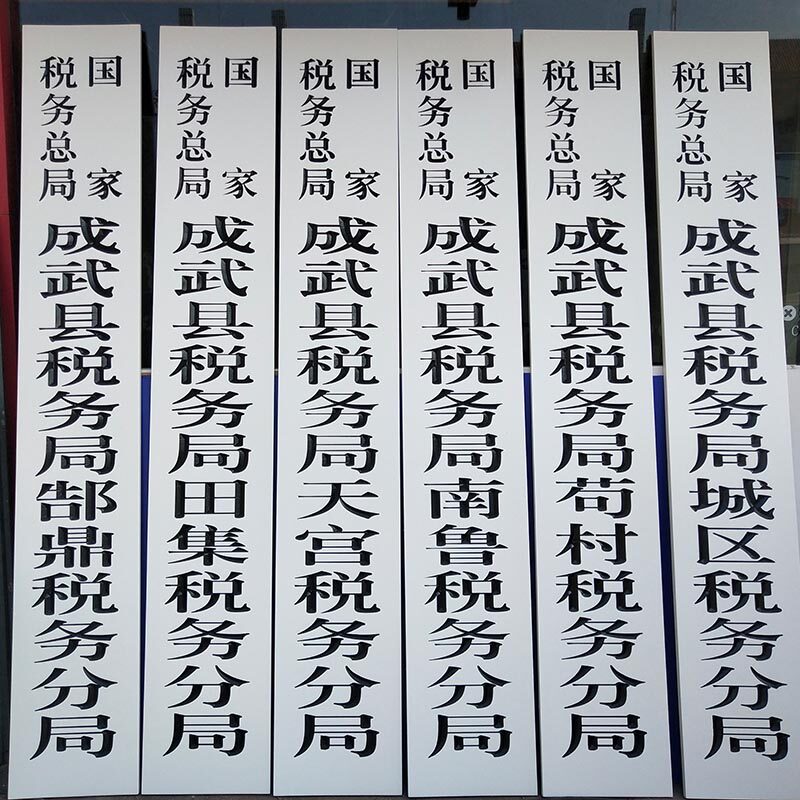 国家
税务总局
成武县税务局郜鼎税务分局
国家
税务总局
成武县税务局田集税务分局
国家
税务总局
成武县税务局天宫税务分局
国家
税务总局
成武县税务局南鲁税务分局
国家
税务总局
成武县税务局苟村税务分局
国家
税务总局
成武县税务局城区税务分局